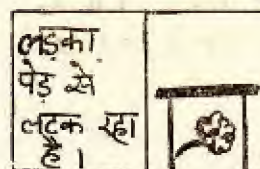 लड़का
पेड़ से
लटक रहा
है।